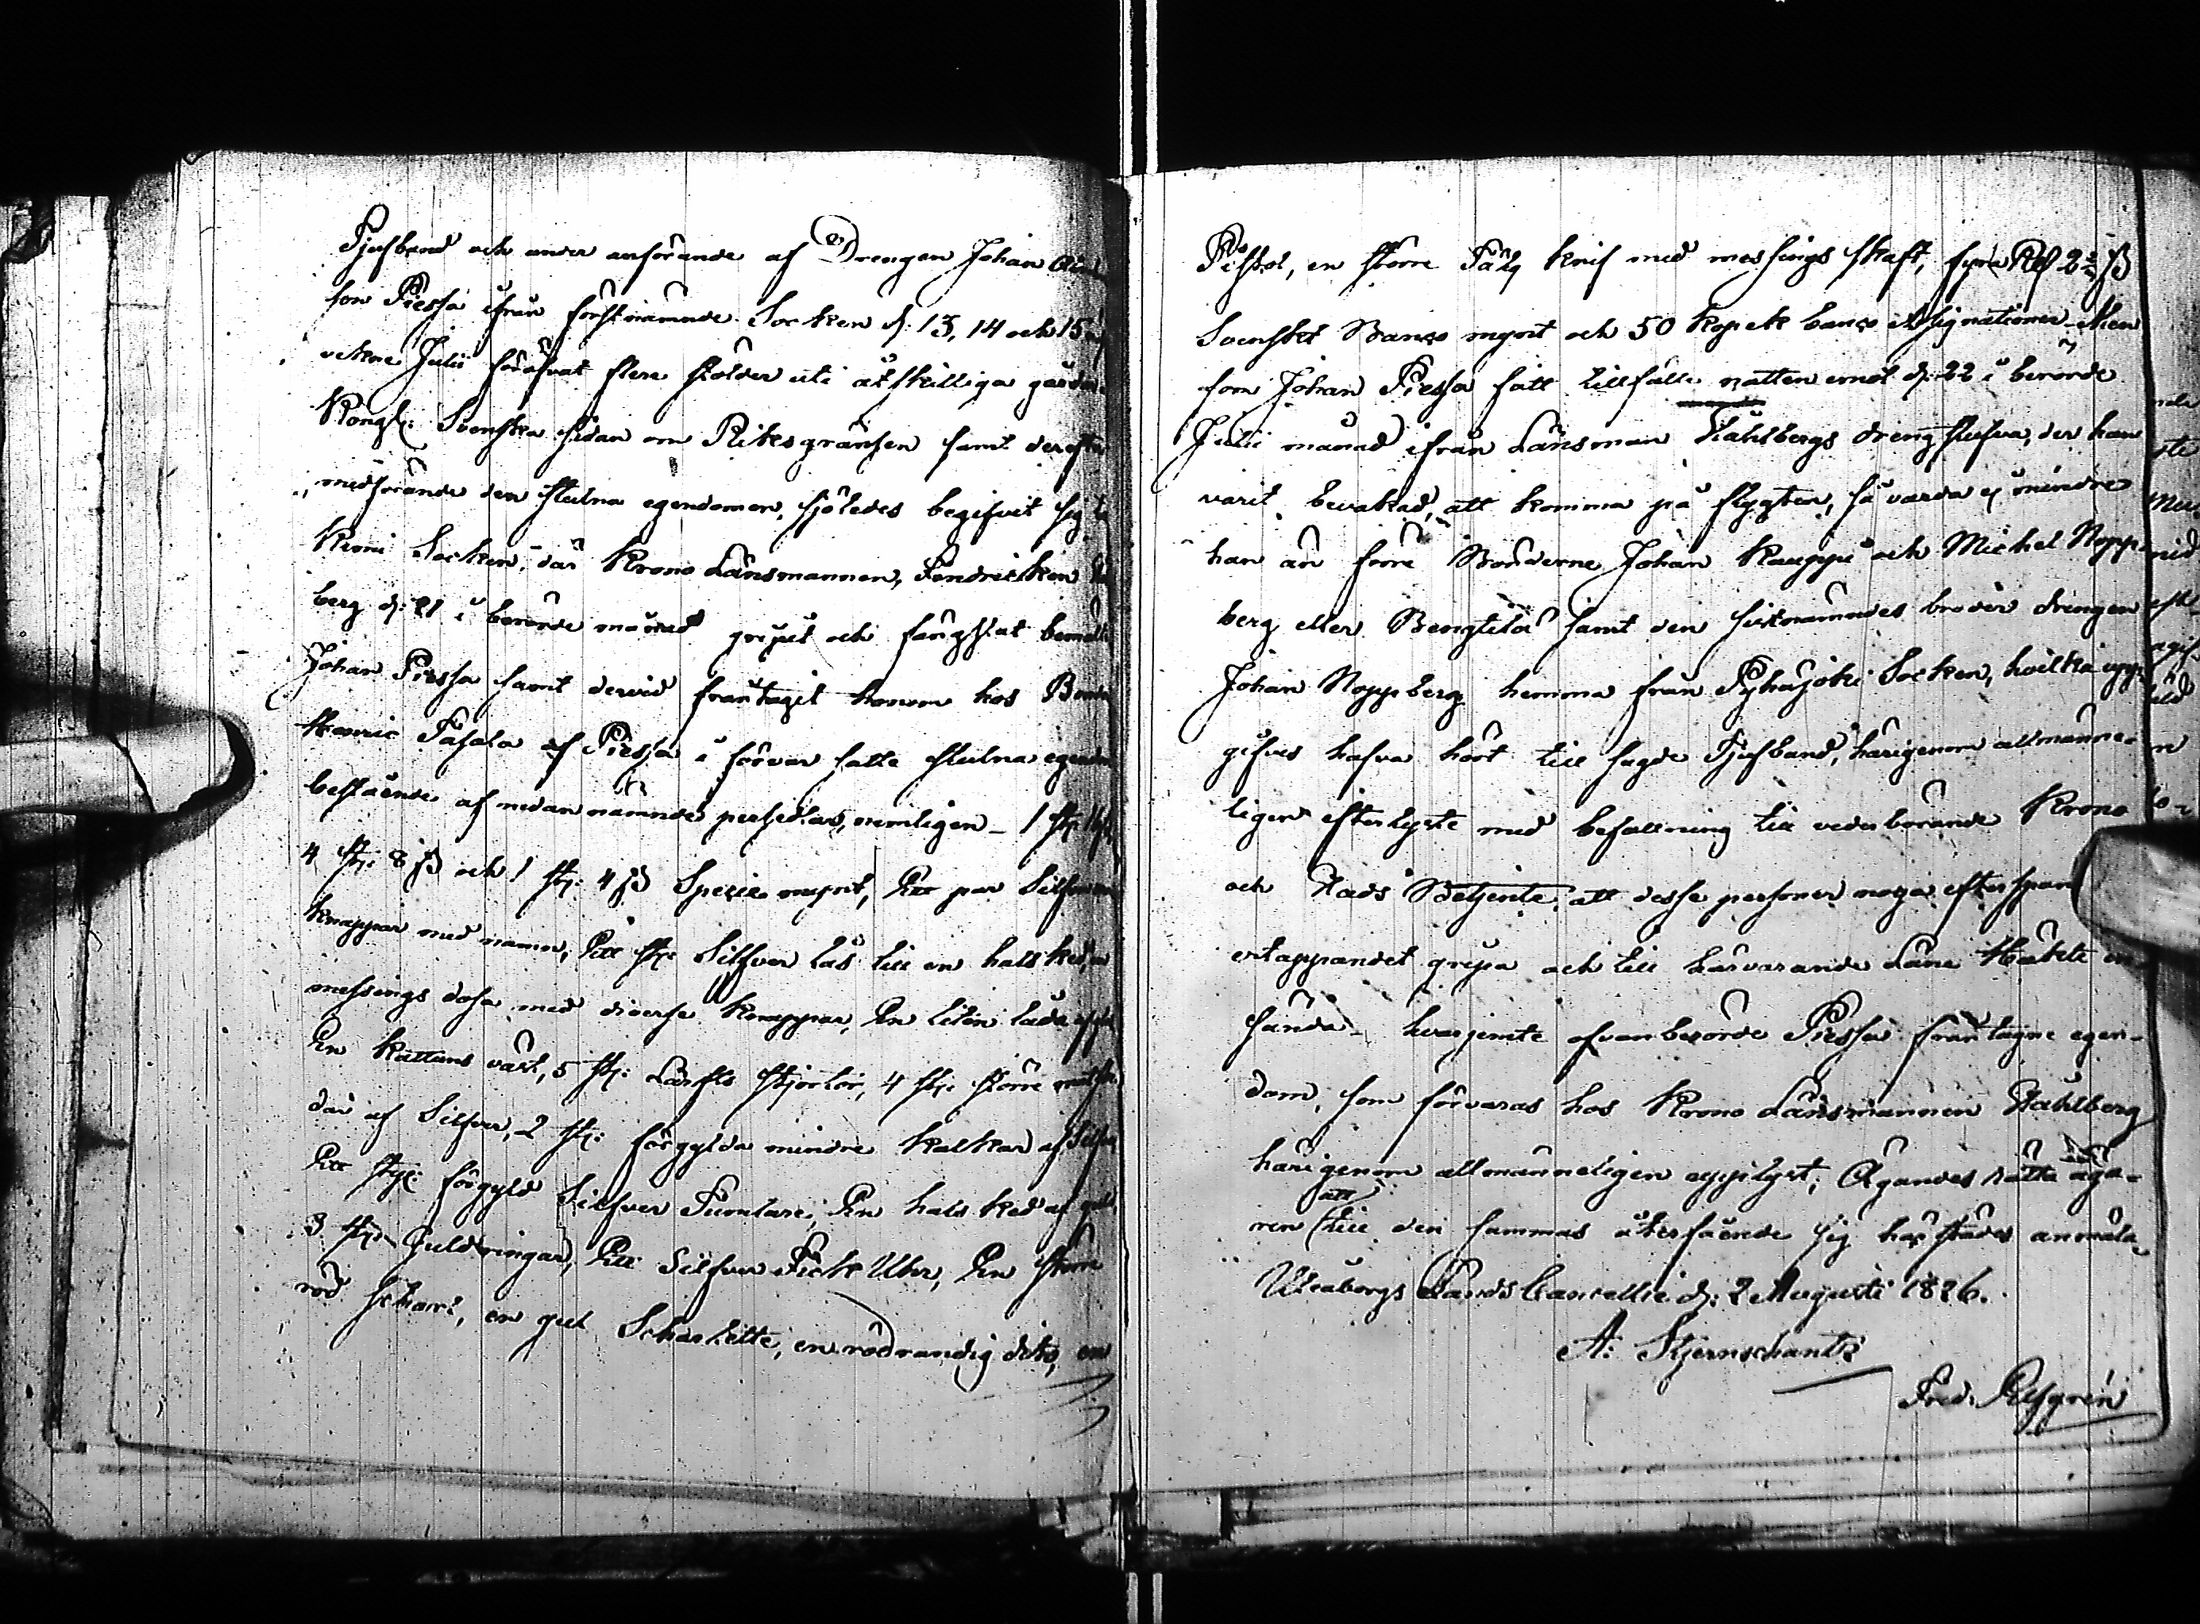 Tjufband och under anförande af Drengen Johan
son Piessa ifrån förstnämnde Socken d: 13, 14 och 15
vekne Julii föröfvat flere stölder uti åtskilliga gårdar
Kongl: Svenska sidan om Riksgränsen samt derefter
medförande den stulna egendomen, sjöledes begifvit sig
Kemi Socken, där Krono Länsmannen, Fendricken
berg d: 21 i berörde månad gripit och fängslat bemälte
Johan Piessa samt dervid fråntagit honom hos Bonden
Henric Tasala af Piessa i förvar satte stulna egendom
bestående af nedannämnde persedlar, nemligen - 1 st:
4 st: 8 ß och 1 st: 4 ß Specie mynt, Ett par Silfver
knappar med namn, Ett st: Silfver lås till en halsked, en
messings dosa med diverse knappar, En liten låda
En kattuns väst, 5 st: Lärfts skjortor, 4 st: större
dar af Silfver, 2 st: förgylda mindre kalkar af Silfver
Ett st: förgyld Silfver Tumlare, En hals ked af
3 st: Guldringar, Ett Silfver Fick Uhr, En större
röd schawl, en gul Schalette, en rödrandig dito, en
Pistol, en större Tälg knif med messings skaft, fyra Rd 2 ß
Svenskt Banco mynt och 50 kopek banco Assignationer - Men
som Johan Piessa fått tillfälle natten emot d: 22 i berörde
Julii månad ifrån Länsman Ståhlbergs drengstufva, der han
varit bevakad, att komma på flygten, så varda ej mindre
han än förre Bönderne Johan Kauppi och Michel Nopp-
berg eller Bengtilä samt den sistnämndes broder drengen
Johan Noppberg hemma från Pyhäjoki Socken, hvilka upp-
gifves hafva hört till sagde Tjufband, härigenom allmänne-
ligen efterlyste med befallning till vederbörande Krono
och Stads Betjente, att desse personer noga efterspana
ertappandet gripa och till härvarande Läne Häkte in
sända - hvarjemte ofvanberörde Piessa fråntagne egen-
dom, som förvaras hos Krono Länsmannen Ståhlberg
härigenom allmänneligen opplyst; Ägandes rätta äga-
ren att till den sammas återfående sig härstädes anmäla.
Uleåborgs Lands Cancellie d: 2 Augusti 1826.
A: Stjernschantz
Fred: